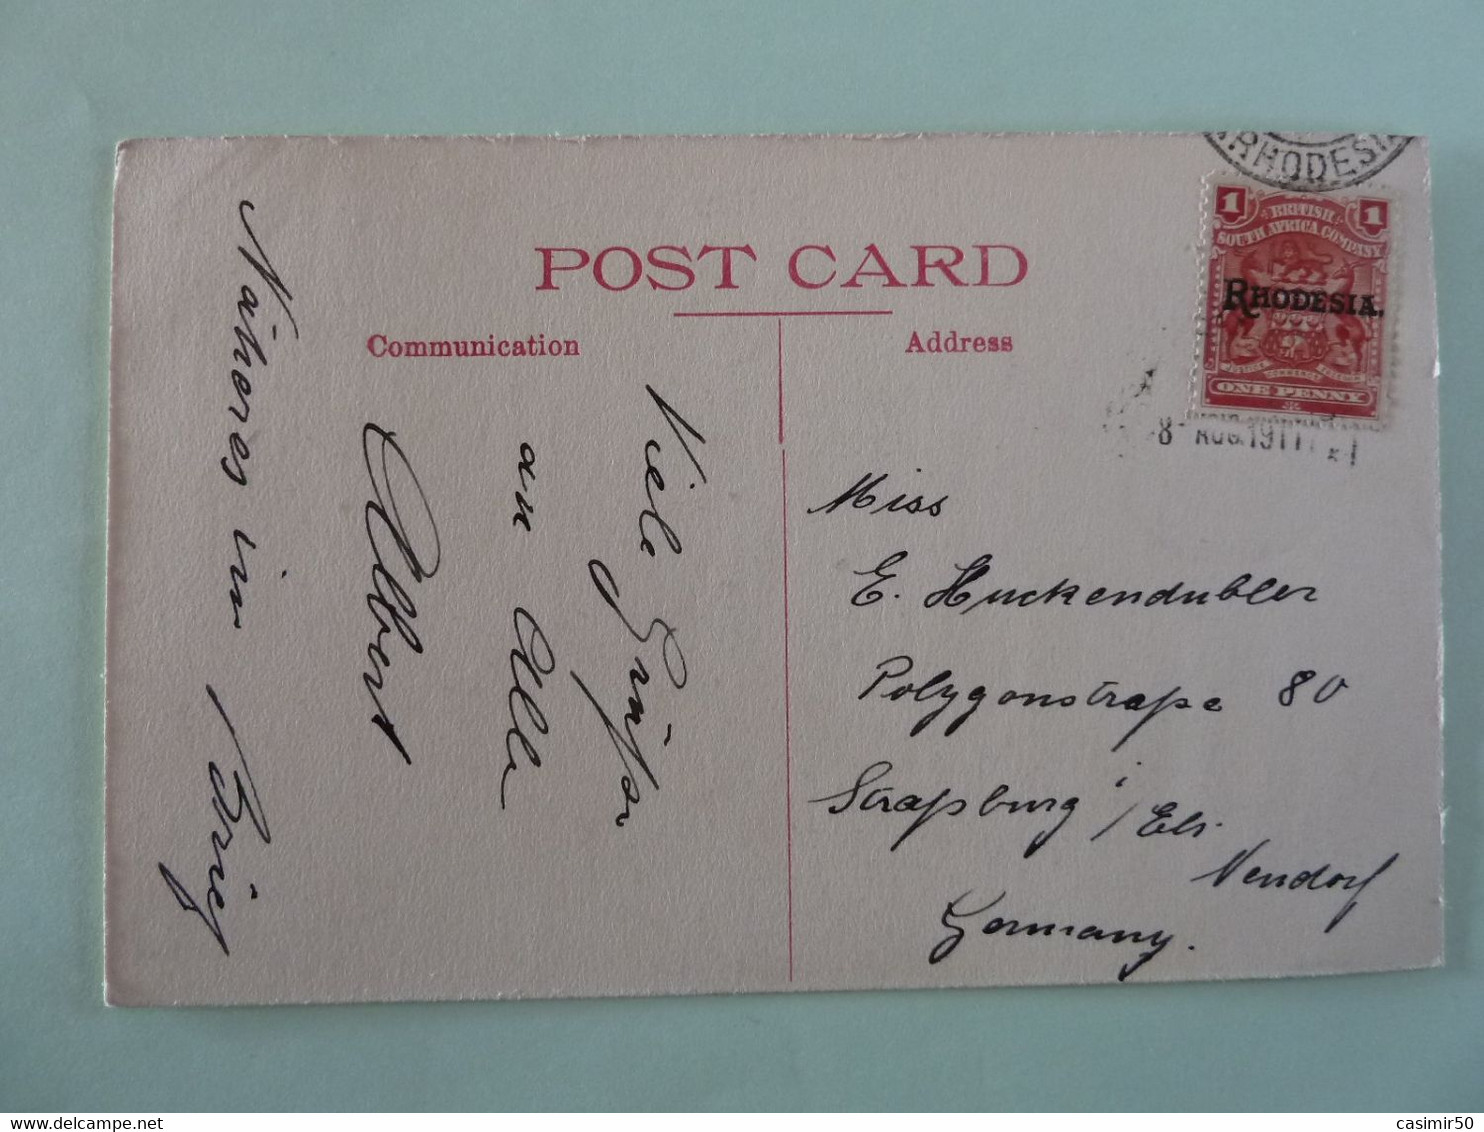 POST CARD
Communication
Address
Viele Grüsse
an Alle
Albert
Näheres im Brief
RHODESIA
1 1
BRITISH
SOUTH AFRICA COMPANY
RHODESIA.
JUSTICE COMMERCE FREEDOM
ONE PENNY
8 AUG 1911
Miss
E. Huckendubler
Polygonstraße 80
Straßburg i/Els.
Neudorf
Germany.
casimir50